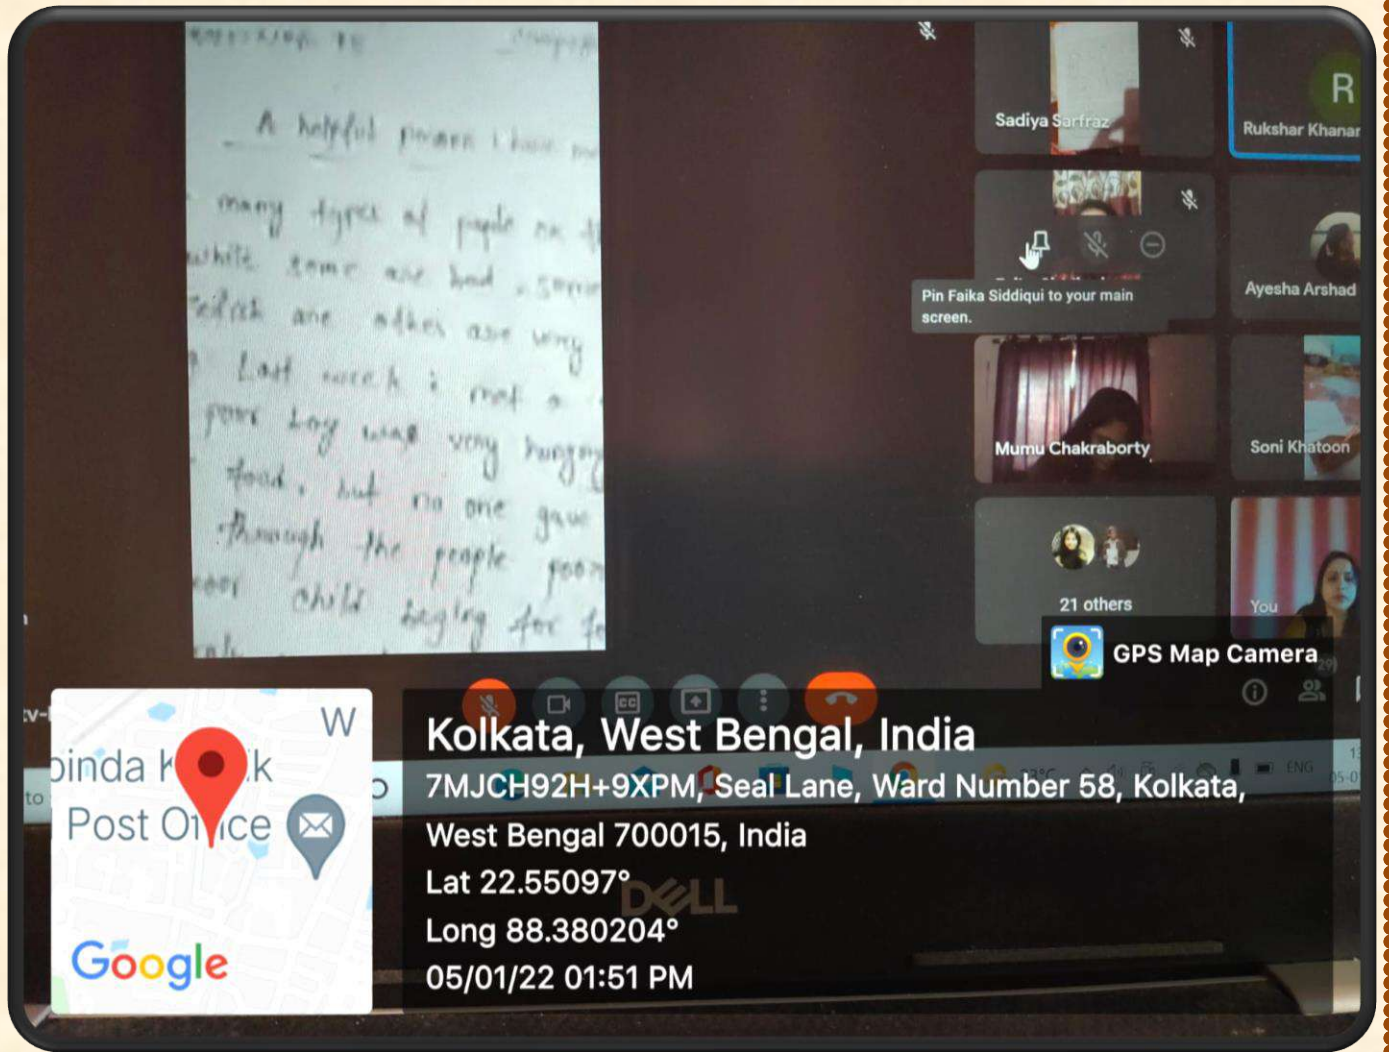 A helpful person i have
many types of people on
while some are bad . some
are other are very
Last week i met a
poor boy was very hungry
food, but no one gave
through the people poor
child beging for
Sadiya Sarfraz
R
Rukshar Khanar
Pin Faika Siddiqui to your main
screen.
Ayesha Arshad
Mumu Chakraborty
Soni Khatoon
21 others
You
GPS Map Camera
CC
W
Post Office
Google
Kolkata, West Bengal, India
7MJCH92H+9XPM, Seal Lane, Ward Number 58, Kolkata,
West Bengal 700015, India
Lat 22.55097°
Long 88.380204°
05/01/22 01:51 PM
DELL
ENG